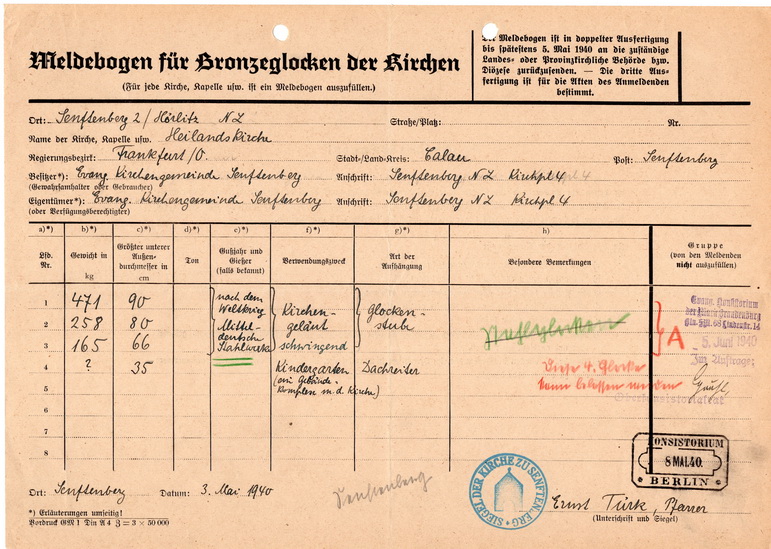 Meldebogen für Bronzeglocken der Kirchen
(Für jede Kirche, Kapelle usw. ist ein Meldebogen auszufüllen.)
Der Meldebogen ist in doppelter Ausfertigung
bis spätestens 5. Mai 1940 an die zuständige
Landes- oder Provinzkirchliche Behörde bzw.
Diözese zurückzusenden. — Die dritte Aus-
fertigung ist für die Akten des Anmeldenden
bestimmt.
Ort: Senftenberg 2 / Hörlitz NL Straße/Platz: Nr.
Name der Kirche, Kapelle usw. Heilandskirche
Regierungsbezirk: Frankfurt/O. Stadt-/Land-Kreis: Calau Post: Senftenberg
Besitzer*): Evang. Kirchengemeinde Senftenberg Anschrift: Senftenberg NL Kirchpl. 4
(Gewahrsamhalter oder Gebraucher)
Eigentümer*): Evang. Kirchengemeinde Senftenberg Anschrift: Senftenberg NL Kirchpl. 4
(oder Verfügungsberechtigter)
a)*) b)*) c)*) d)*) e)*) f)*) g)*) h)
Lfd. Nr. Gewicht in kg Größter unterer Außendurchmesser in cm Ton Gußjahr und Gießer (falls bekannt) Verwendungszweck Art der Aufhängung Besondere Bemerkungen Gruppe (von den Meldenden nicht auszufüllen)
1 471 90 nach dem Weltkrieg Kirchen- Glocken-
2 258 80 Mittel- geläut stube
3 165 66 deutsche Stahlwerke schwingend
A
4 ? 35 Kindergarten Dachreiter
(ein Gebäude-
komplex m. d. Kirche)
Diese 4. Glocke
kann belassen werden
Evang. Konsistorium
der Mark Brandenburg
Bln. SW. 68 Lindenstr. 14
5. Juni 1940
Im Auftrage:
Oberkonsistorialrat
5
6
7
8
KONSISTORIUM
8 MAI.40.
BERLIN
Ort: Senftenberg Datum: 3. Mai 1940
Senftenberg
SIEGEL DER KIRCHE ZU SENFTENBERG
Ernst Türk, Pfarrer
(Unterschrift und Siegel)
*) Erläuterungen umseitig!
Vordruck GM 1 Din A 4 3 = 3 × 50 000